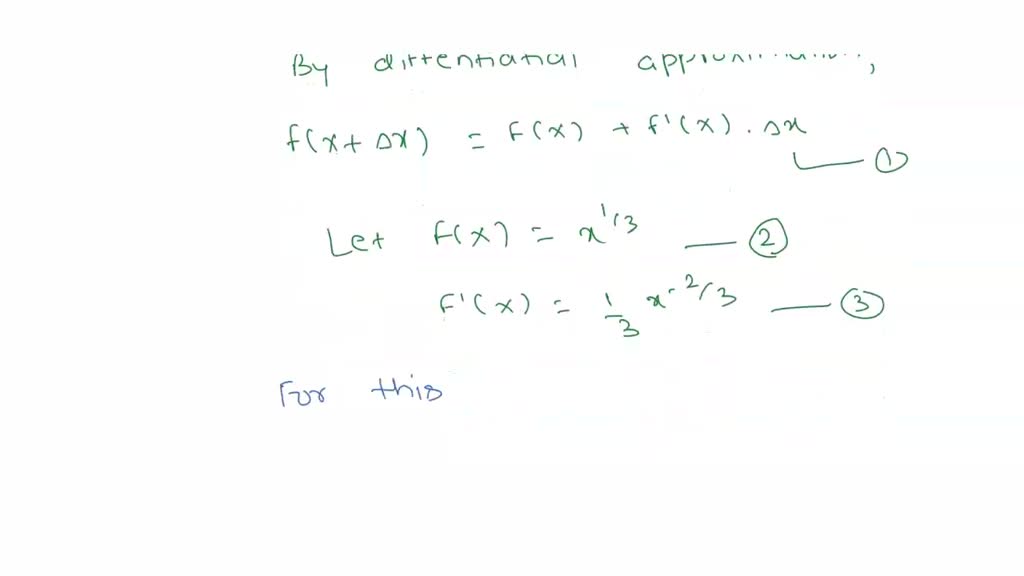 By differentiatial approximation,
f(x + Δx) = F(x) + f'(x) . Δx
①
Let F(x) = x^1/3 — ②
F'(x) = 1/3 x^-2/3 — ③
For this